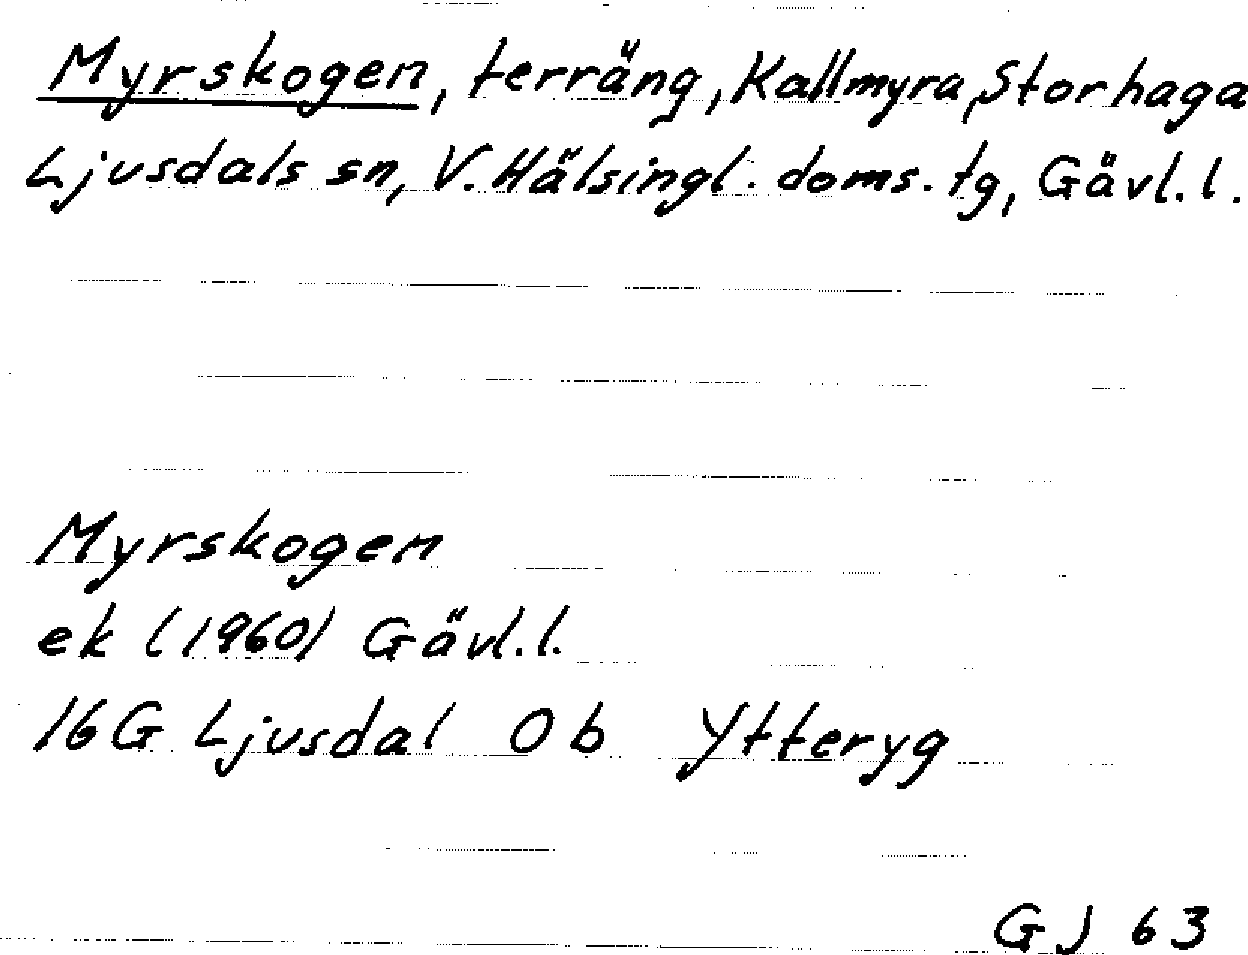 Myrskogen, terräng, Kallmyra, Storhaga
Ljusdals sn, V. Hälsingl. doms. tg, Gävl. l.
Myrskogen
ek (1960) Gävl. l.
16G Ljusdal 0 b Ytteryg
GJ 63